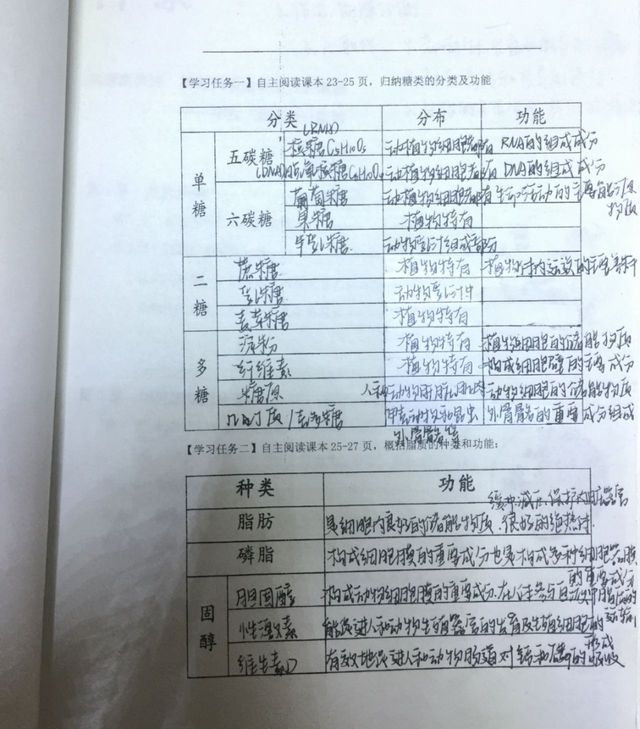 【学习任务一】自主阅读课本 23-25 页，归纳糖类的分类及功能
分类 分布 功能
(RNA)
五碳糖 核糖C₅H₁₀O₅ 动植物细胞都有 RNA的组成成分
(DNA)脱氧核糖C₅H₁₀O₄ 动植物细胞都有 DNA的组成成分
单糖
六碳糖 葡萄糖 动植物细胞都有 生命活动的主要能源物质
果糖 植物特有
半乳糖 动物乳汁组成部分
二糖
蔗糖 植物特有 植物体内运输的主要
乳糖 动物乳汁
麦芽糖 植物特有
多糖
淀粉 植物特有 植物细胞的储能物质
纤维素 植物特有 构成细胞壁的主要成分
糖原 人和动物肝脏肌肉 动物细胞的储能物质
几丁质/壳多糖 甲壳动物和昆虫外骨骼 外骨骼的重要成分组成
【学习任务二】自主阅读课本 25-27 页，概括脂质的种类和功能：
种类 功能
缓冲减压保护内脏器官
脂肪 是细胞内良好的储能物质 很好的绝热体
磷脂 构成细胞膜的重要成分也是构成多种细胞器膜的重要成分
固醇
胆固醇 构成动物细胞膜的重要成分.在人体参与血液中脂质的运输
性激素 能促进人和动物生殖器官的发育及生殖细胞的形成
维生素D 有效地促进人和动物肠道对钙和磷的吸收